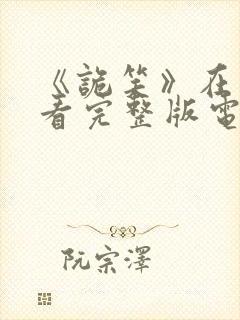 《詭笑》在
看完整版電
阮宗澤